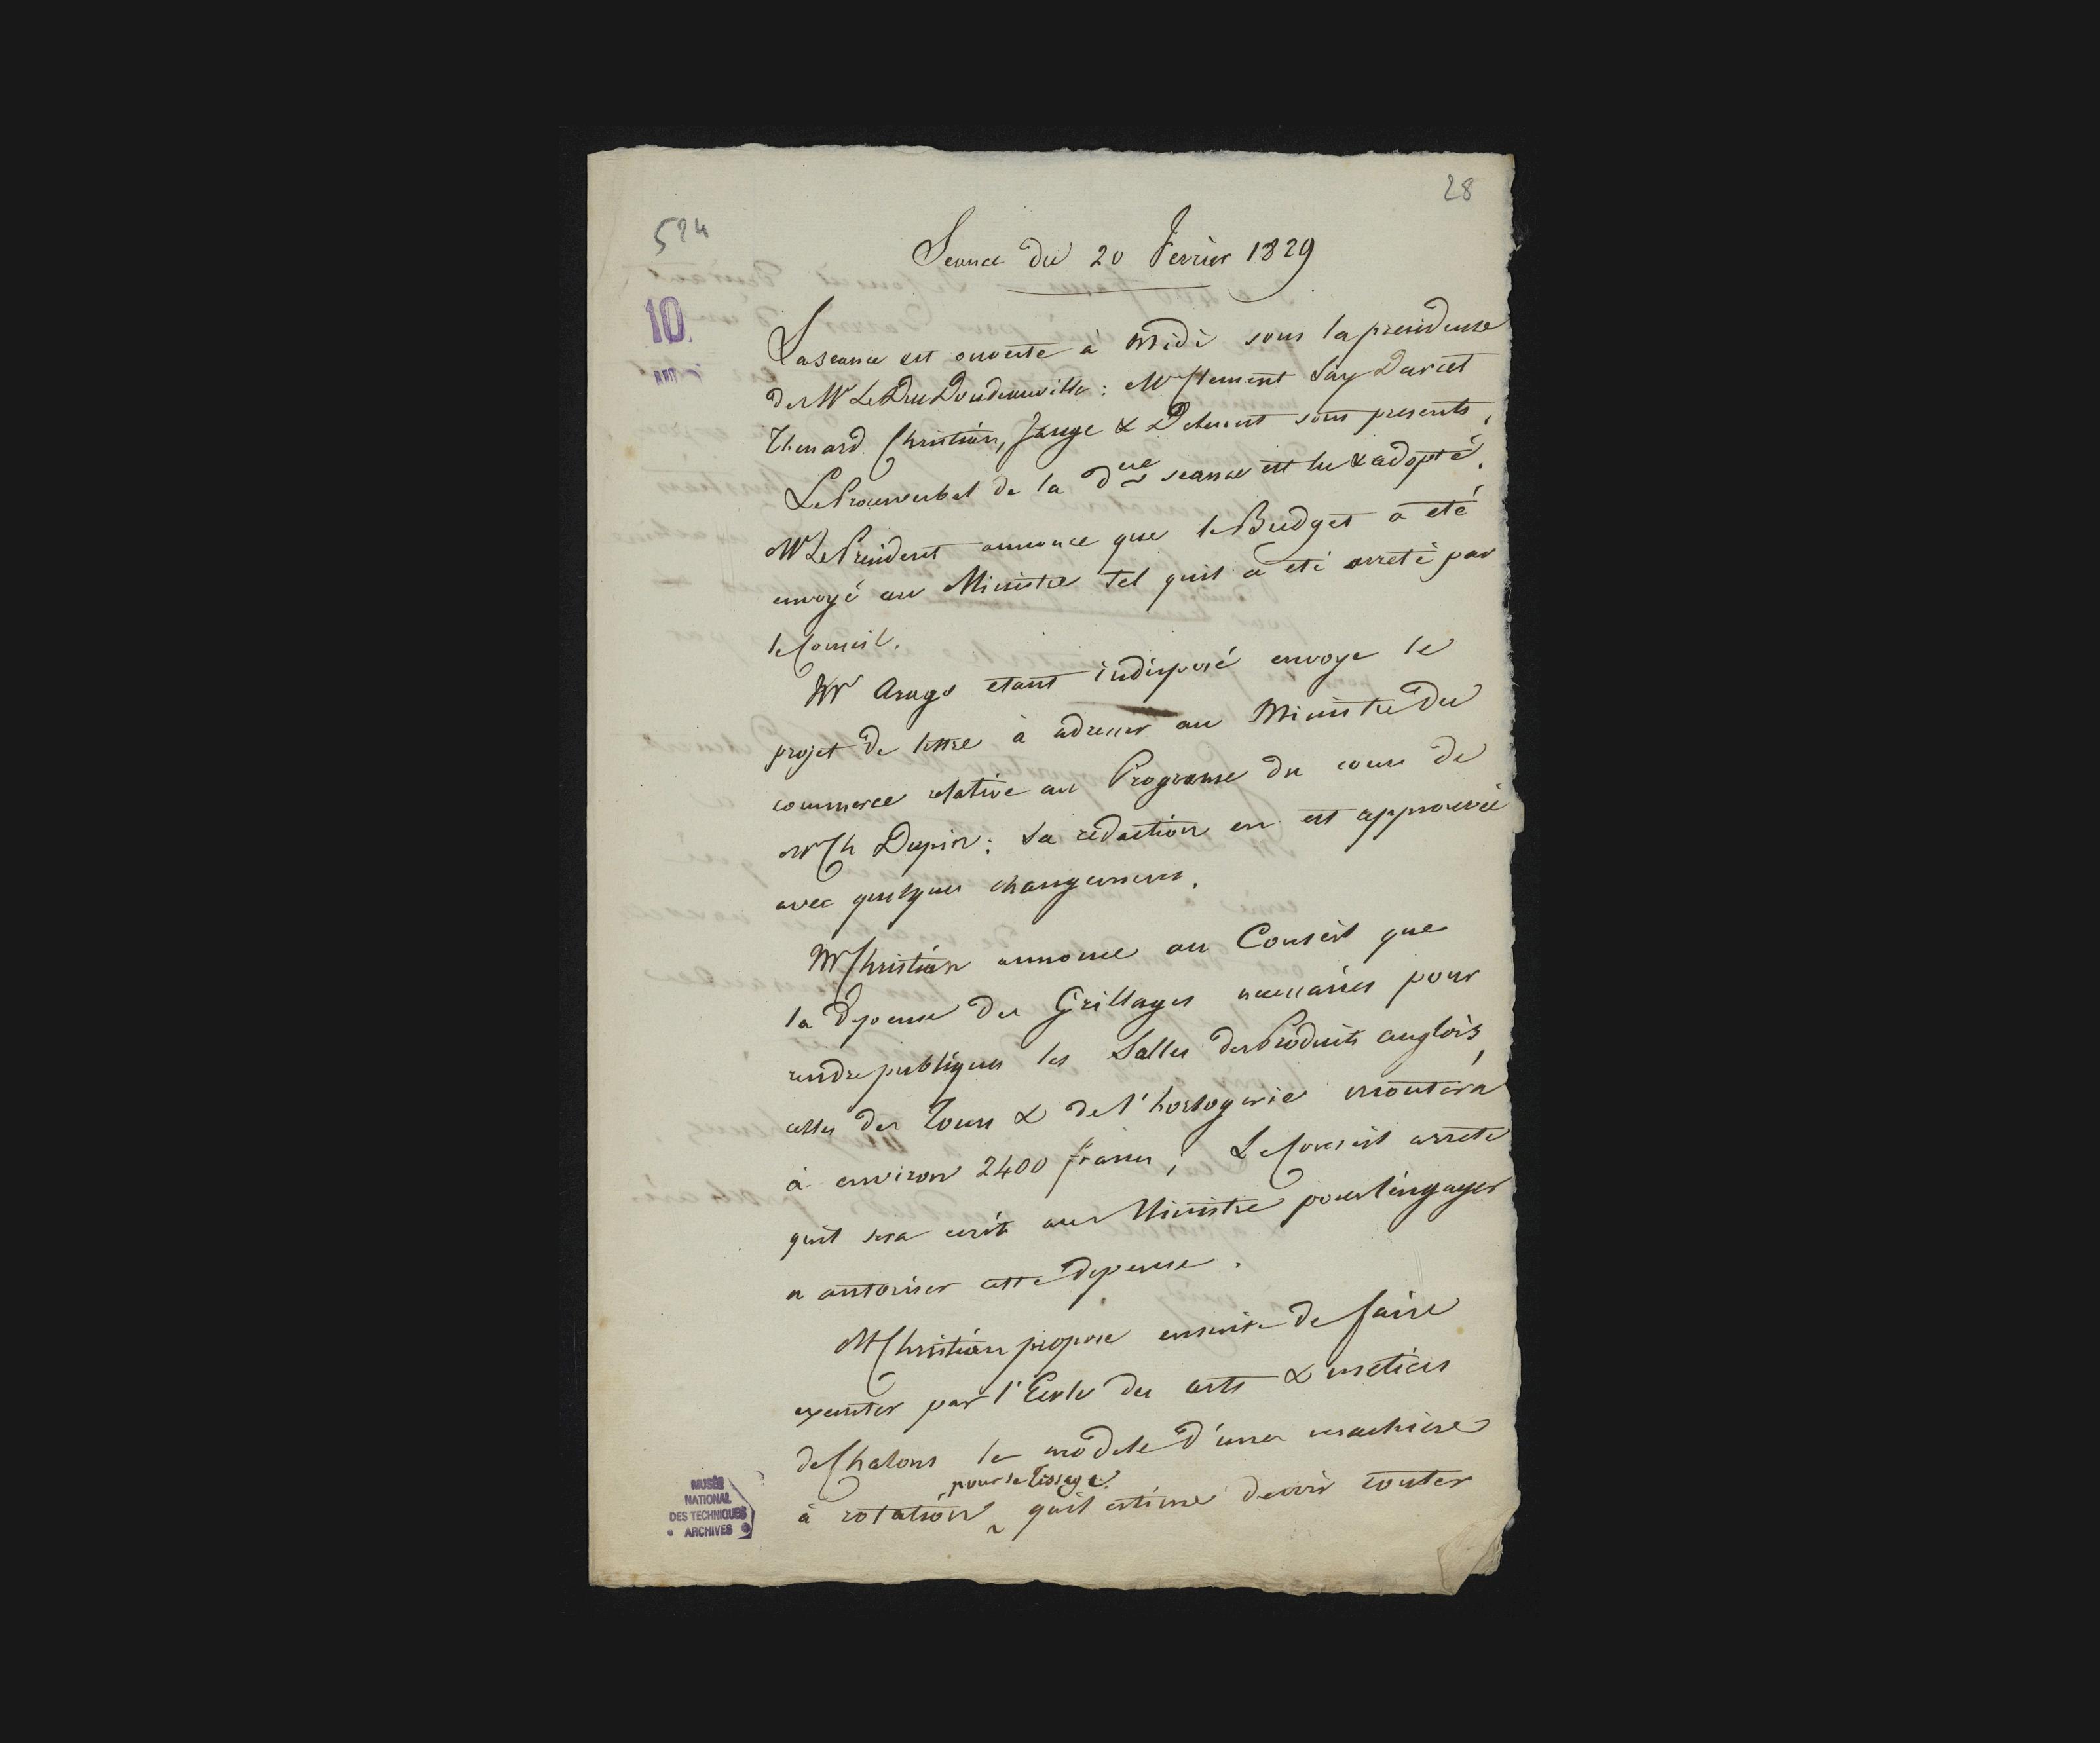 28
524
10
Seance du 20 Fevrier 1829
La seance est ouverte à Midi sous la presidence
de Mr Le Duc Doudeauville : Mrs Clement Say Darcet
Thenard Christian, Jauge & Delmest sont presents.
Le Proces verbal de la dre seance est lu & adopté.
Mr Le President annonce que le Budget a eté
envoyé au Ministre tel quil a eté arreté par
le Conseil.
Mr Arago etant indisposé envoye le
projet de lettre à adresser au Ministre du
commerce relative au Programe du cours de
Mr Ch Dupin : La rédaction en est approuvée
avec quelques changemens.
Mr Christian annonce au Conseil que
la depense des Grillages necessaires pour
rendre publiques les Salles des Produits anglois,
celles des Tours & de l'horlogerie montera
à environ 2400 francs ; Le Conseil arrete
quil sera ecrit au Ministre pour l'engager
a autoriser cette depense.
Mr Christian propose ensuite de faire
executer par l'Ecole des arts & metiers
de Chalons le modele d'une machine
pour le Tissage
à rotation quil estime devoir couter
MUSÉE
NATIONAL
DES TECHNIQUES
ARCHIVES